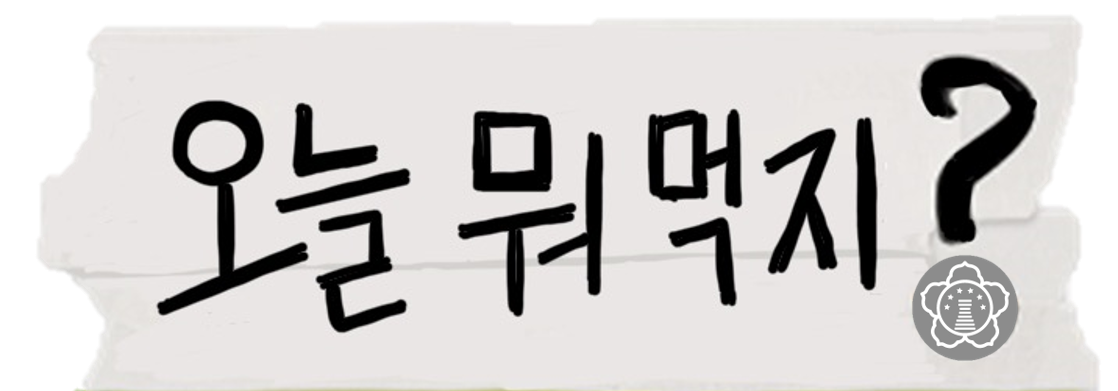 오늘 뭐 먹지?